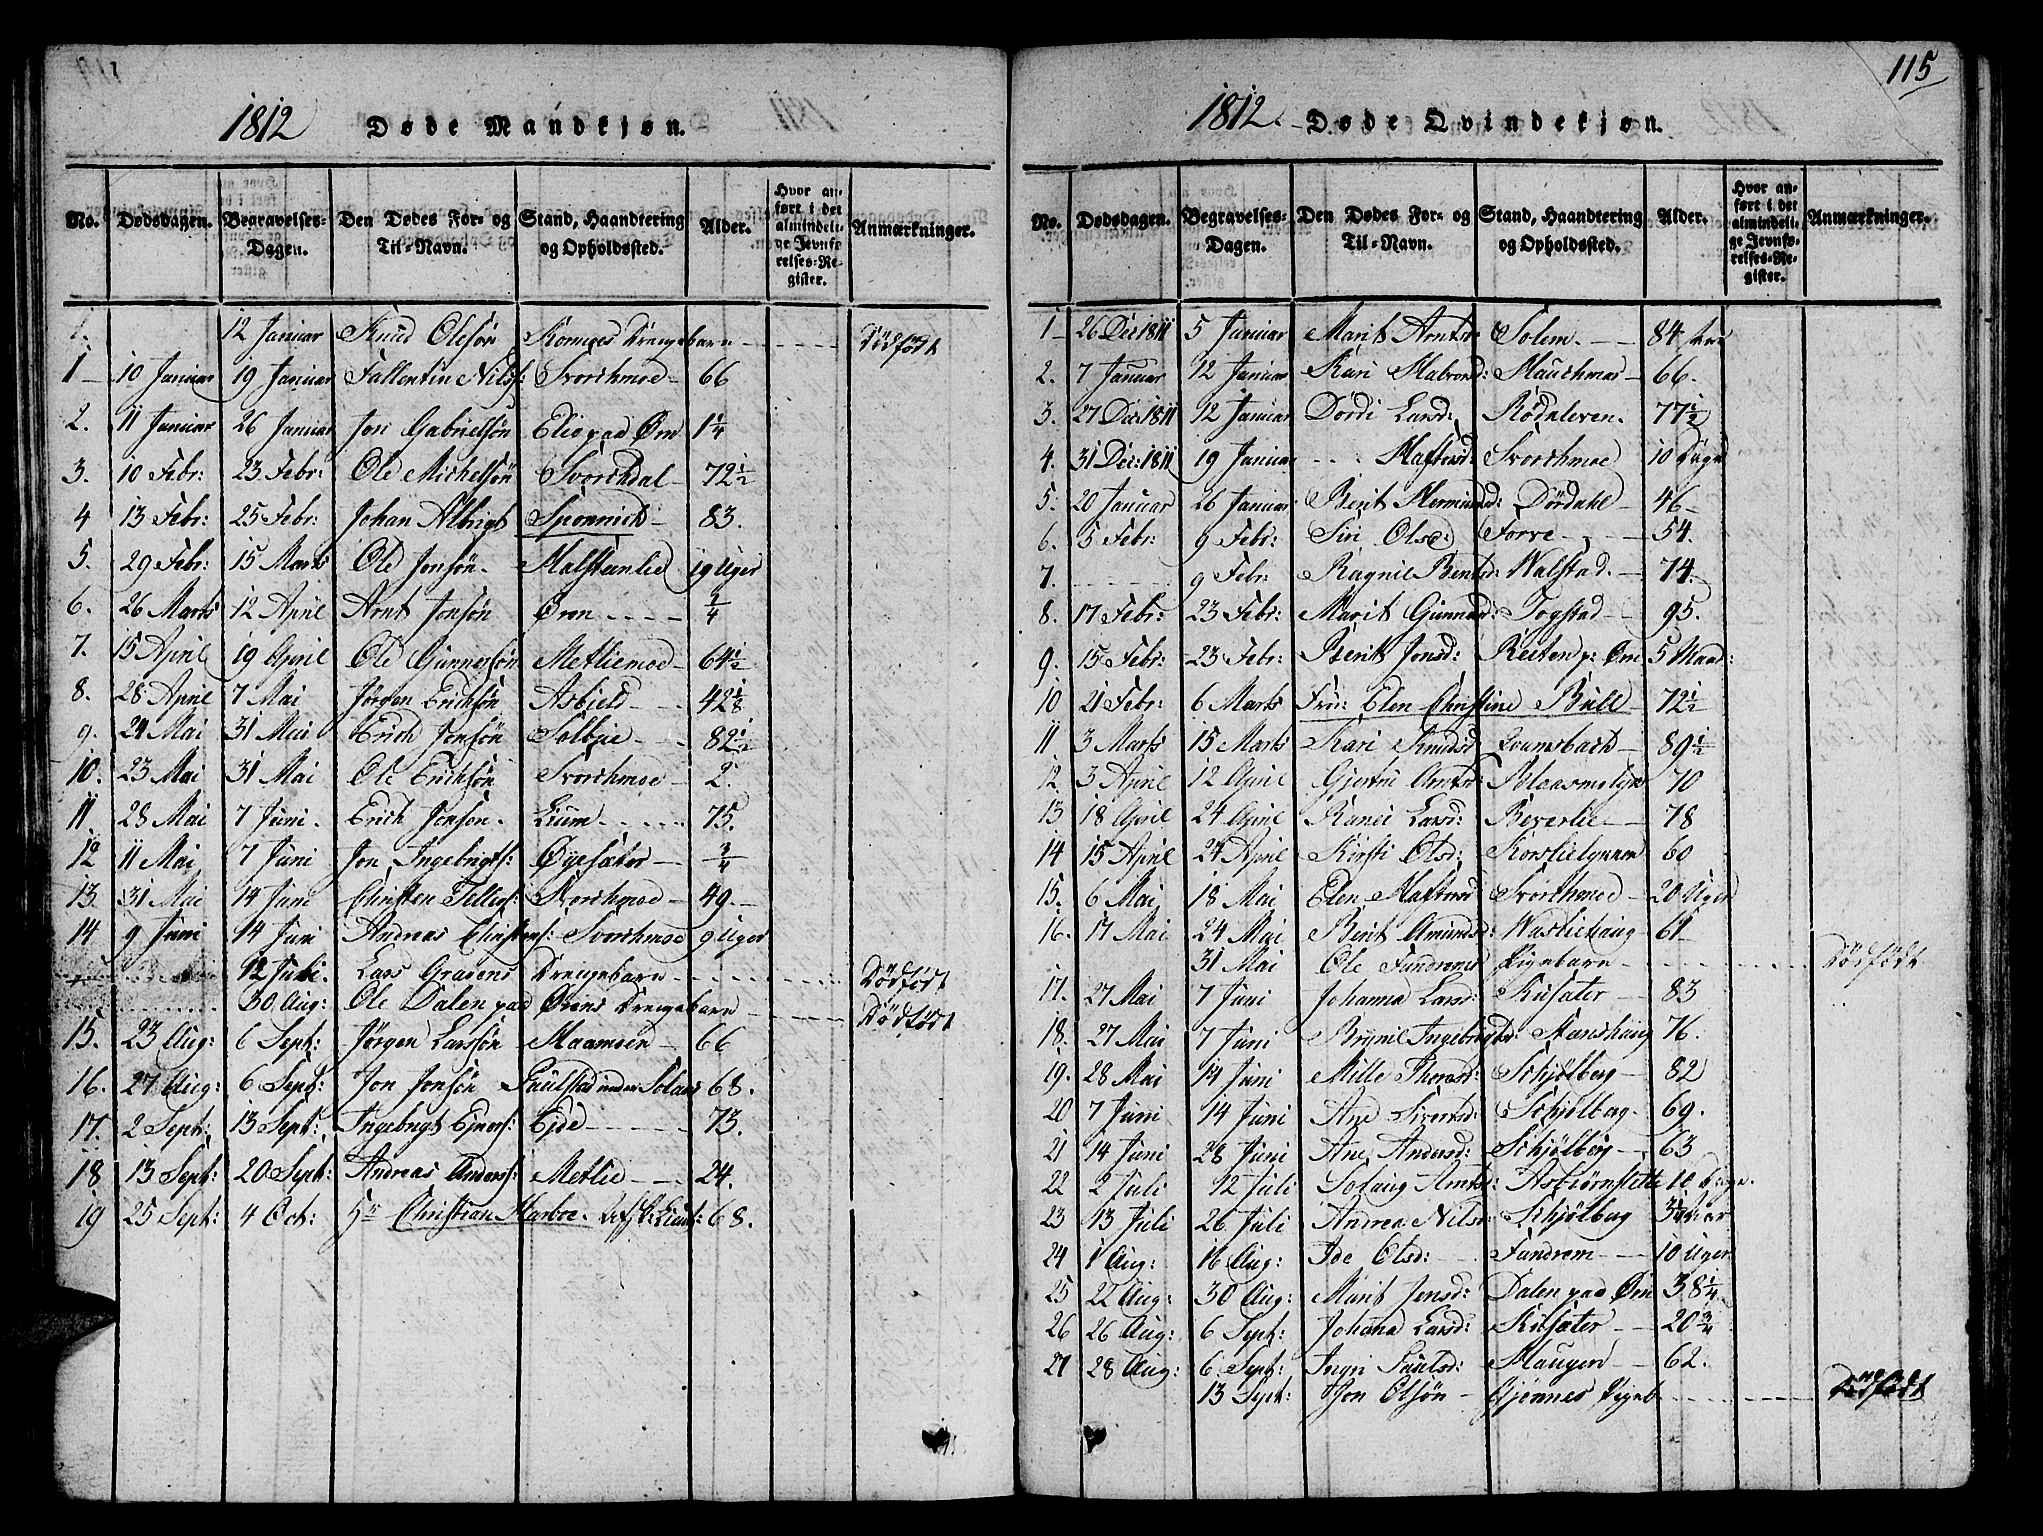 115
1812 Døde Mandkjøn.
No. Dødsdagen. Begravelses-Dagen. Den Dødes For- og Til-Navn. Stand, Haandtering og Opholdssted. Alder. Hvor anført i det almindelige Jevnførelses-Register. Anmærkninger.
12 Januar Knud Olesøn Drengebarn Dödfödt
1 10 Januar 19 Januar Fallentin Nilss: Svorchmoe 66
2. 11 Januar 26 Januar Jon Gabrielsön Elie paa Örn 1 1/4
3. 10 Febr: 23 Febr: Ole Michelsön Svorchdal 72 1/2
4 13 Febr: 25 Febr: Johan Albrigt 83.
5. 29 Febr: 15 Marts Ole Jonsön. 19 Uger
6. 26 Marts 12 April Arnt Jonsön Øren 3/4
7. 15 April 19 April Ole Gunnersön Metliemoe 64 1/2
8. 28 April 7 Mai Jörgen Erichsön Asbield 42 1/8
9. 24 Mai 31 Mai Erich Jonsön Solbue 82 1/2
10. 23 Mai 31 Mai Ole Erichsön Svorchmoe 2.
11 28 Mai 7 Juni. Erich Jonson. Lium 75.
12 11 Mai 7 Juni Jon Ingebrigts: Øyesæter 3/4
13. 31 Mai 14 Juni Christen Tellefs: Svorchmoe 49.
14 9 Juni 14 Juni Andreas Christens: Svorchmoe 9 Uger
12 Juli. Lars Gradens Drengebarn Dödfödt
30 Aug: Ole Dalen paa Ørens Drengebarn Dödfödt
15. 23 Aug: 6 Sept: Jörgen Larssön Maamoen 66
16. 27 Aug: 6 Sept: Jon Jonsön 68.
17. 2 Sept: 13 Sept: Ingebrigt Ejners: Ejde 73.
18 13 Sept: 20 Sept: Andreas Anders: Metlie 24.
19 25 Sept: 4 Oct: Christian Harboe. 68.
1812. Døde Qvindekjøn.
No. Dødsdagen. Begravelses-Dagen. Den Dødes For- og Til-Navn. Stand, Haandtering og Opholdssted. Alder. Hvor anført i det almindelige Jevnførelses-Register. Anmærkninger.
1 26 Dec 1811 5 Januar Marit Arntsd Solem. 84
2. 7 Januar 12 Januar Kari 66.
3. 27 Dec 1811 12 Januar Dordi Larsd: Rödaleren. 77 1/2
4. 31 Dec: 1811 19 Januar Haftersd: Svorchmoe 10 Dage
5. 20 Januar 26 Januar Berit Hermundsd: Dördahl 46
6. 5 Febr: 9 Febr: Siri Olsd: Forve 54.
7. 9 Febr: Ragnil Bentsd: Walstad. 74.
8. 17 Febr: 23 Febr: Marit Gunnard: Togstad 95.
9. 15 Febr: 23 Febr: Berit Jonsd: Reiten p: Örn 5 Maad:
10 21 Febr: 6 Marts Fru: Elen Christine Bull 72 1/2
11 3 Marts 15 Marts Kari Knudsd 89 1/2
12. 3 April 12 April Gjertru Arntsd: 70
13 18 April 24 April Ranei Larsd: Beverlie 78
14 15 April 24 April Kirsti Olsd: Korslielykken 60
15. 6 Mai 18 Mai Elen Haftersd Svorchmoe 20 Uger
16. 17 Mai 24 Mai Berit Amundsd: Wasliehaug 61
31 Mai Ole Fundrems Pigebarn Dödfödt
17. 27 Mai 7 Juni Johanna Larsd: Kusæter 83
18. 27 Mai 7 Juni Brynil Ingebrigtsd: 76.
19. 28 Mai 14 Juni Mille Thoresd: Schjölberg 82
20 7 Juni 14 Juni Ane Siversd: Schjölberg. 69.
21 14 Juni 28 Juni Ane Andersd: Schjölberg 63
22 2 Juli 12 Juli Solaug Arntsd: Asbiörnslette 10
23 13 Juli 26 Juli Andrea Nilsd: Schjölberg
24 1 Aug: 16 Aug: Ide Olsd: Fundrem 10 Uger
25 22 Aug: 30 Aug: Marit Jonsd: Dalen paa Örn 38 1/4
26 26 Aug: 6 Sept: Johanna Larsd: Kilsæter 20 3/4
27 28 Aug: 6 Sept: Ingri Paulsd: Haugen 62.
13 Sept: Jon Olsön Gjönnes Pigeb Dödfödt